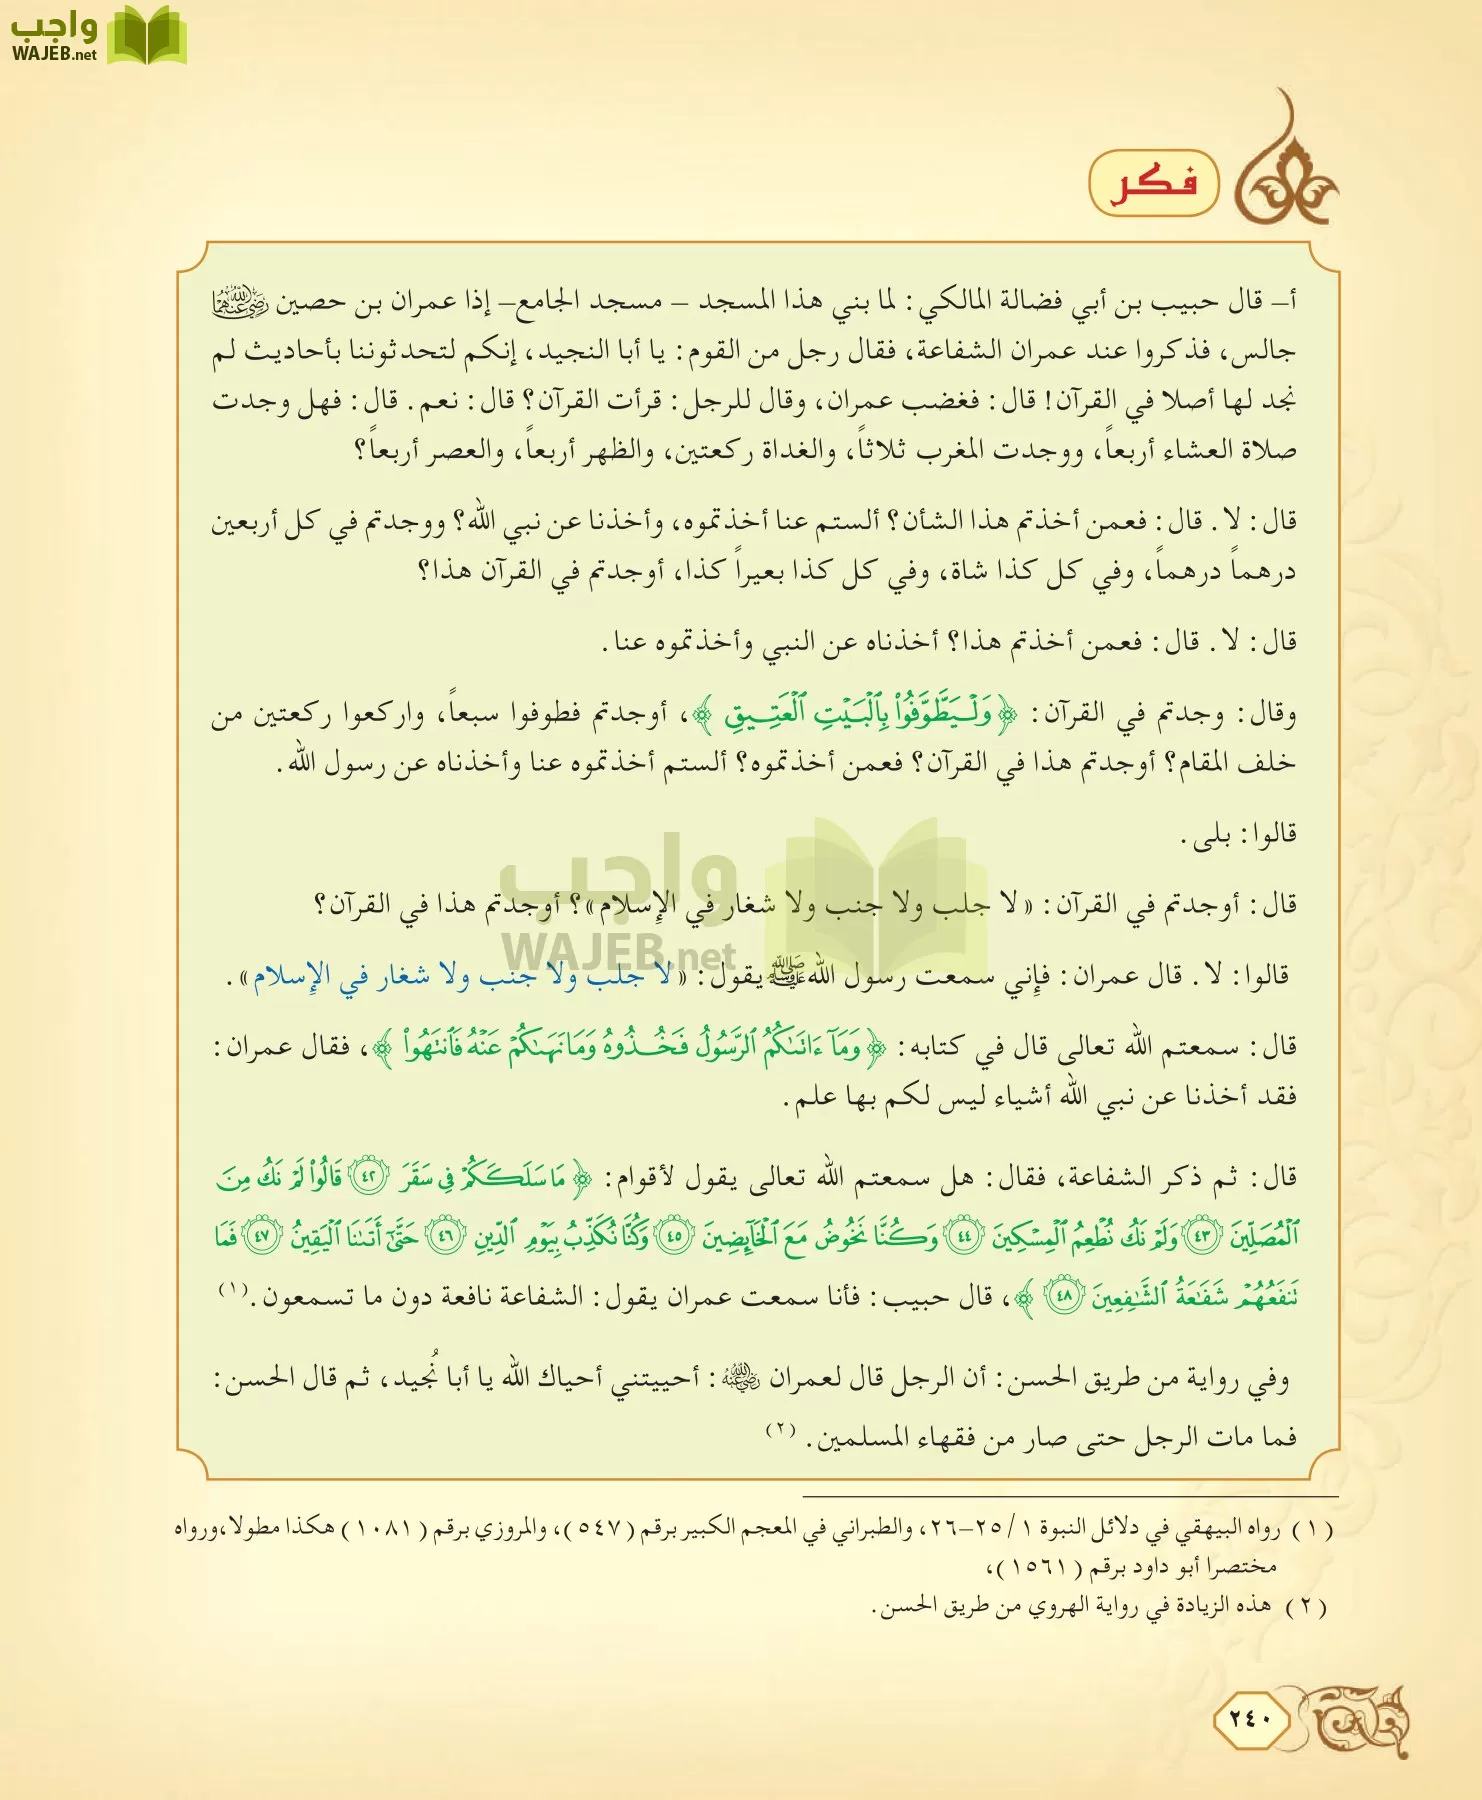 واجب
WAJEB.net
فكر
أ– قال حبيب بن أبي فضالة المالكي: لما بني هذا المسجد – مسجد الجامع– إذا عمران بن حصين رضي الله عنهما
جالس، فذكروا عند عمران الشفاعة، فقال رجل من القوم: يا أبا النجيد، إنكم لتحدثوننا بأحاديث لم
نجد لها أصلا في القرآن! قال: فغضب عمران، وقال للرجل: قرأت القرآن؟ قال: نعم. قال: فهل وجدت
صلاة العشاء أربعاً، ووجدت المغرب ثلاثاً، والغداة ركعتين، والظهر أربعاً، والعصر أربعاً؟
قال: لا. قال: فعمن أخذتم هذا الشأن؟ ألستم عنا أخذتموه، وأخذنا عن نبي الله؟ ووجدتم في كل أربعين
درهماً درهماً، وفي كل كذا شاة، وفي كل كذا بعيراً كذا، أوجدتم في القرآن هذا؟
قال: لا. قال: فعمن أخذتم هذا؟ أخذناه عن النبي وأخذتموه عنا.
وقال: وجدتم في القرآن: ﴿وَلْيَطَّوَّفُوا۟ بِٱلْبَيْتِ ٱلْعَتِيقِ﴾، أوجدتم فطوفوا سبعاً، واركعوا ركعتين من
خلف المقام؟ أوجدتم هذا في القرآن؟ فعمن أخذتموه؟ ألستم أخذتموه عنا وأخذناه عن رسول الله.
قالوا: بلى.
قال: أوجدتم في القرآن: «لا جلب ولا جنب ولا شغار في الإسلام»؟ أوجدتم هذا في القرآن؟
واجب
WAJEB.net
قالوا: لا. قال عمران: فإني سمعت رسول الله ﷺ يقول: «لا جلب ولا جنب ولا شغار في الإسلام».
قال: سمعتم الله تعالى قال في كتابه: ﴿وَمَآ ءَاتَىٰكُمُ ٱلرَّسُولُ فَخُذُوهُ وَمَا نَهَىٰكُمْ عَنْهُ فَٱنتَهُوا۟﴾، فقال عمران:
فقد أخذنا عن نبي الله أشياء ليس لكم بها علم.
قال: ثم ذكر الشفاعة، فقال: هل سمعتم الله تعالى يقول لأقوام: ﴿مَا سَلَكَكُمْ فِى سَقَرَ ٤٢ قَالُوا۟ لَمْ نَكُ مِنَ
ٱلْمُصَلِّينَ ٤٣ وَلَمْ نَكُ نُطْعِمُ ٱلْمِسْكِينَ ٤٤ وَكُنَّا نَخُوضُ مَعَ ٱلْخَآئِضِينَ ٤٥ وَكُنَّا نُكَذِّبُ بِيَوْمِ ٱلدِّينِ ٤٦ حَتَّىٰٓ أَتَىٰنَا ٱلْيَقِينُ ٤٧ فَمَا
تَنفَعُهُمْ شَفَٰعَةُ ٱلشَّٰفِعِينَ ٤٨﴾، قال حبيب: فأنا سمعت عمران يقول: الشفاعة نافعة دون ما تسمعون.(١)
وفي رواية من طريق الحسن: أن الرجل قال لعمران رضي الله عنه: أحييتني أحياك الله يا أبا نُجيد، ثم قال الحسن:
فما مات الرجل حتى صار من فقهاء المسلمين. (٢)
(١) رواه البيهقي في دلائل النبوة ١/ ٢٥–٢٦، والطبراني في المعجم الكبير برقم (٥٤٧)، والمروزي برقم (١٠٨١) هكذا مطولا،ورواه
مختصرا أبو داود برقم (١٥٦١)،
(٢) هذه الزيادة في رواية الهروي من طريق الحسن.
٢٤٠